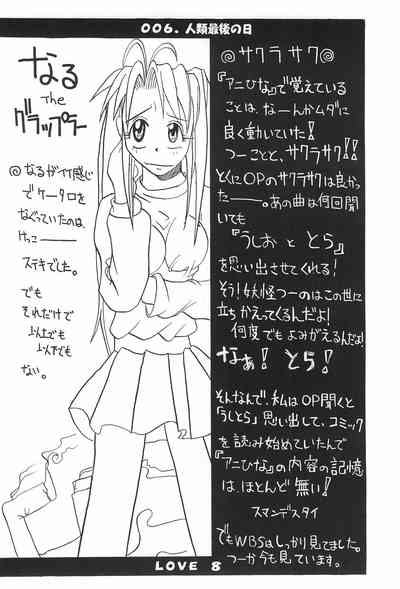 006. 人類最後の日
◎サクラサク◎
『アニひな』で覚えている
ことは、なーんかムダに
良く動いていた!!
つーことと、サクラサク!!
とくにOPのサクラサクは良かっ
たー――。あの曲は何回聞
いても
『うしおととら』
を思い出させてくれる!
そう!妖怪つーのはこの世に
立ちかえってくるんだよ!
何度でもよみがえるんだよ!
なぁ!とら!
そんなんで、私はOP聞くと
『うしとら』思い出して、コミック
を読み始めていたんで
『アニひな』の内容の記憶
は、ほとんど無い!
スマンデスタイ
でもWBSはしっかり見てました。
つーか今も見ています。
なる
The
グラップラー
◎なるがイイ感じ
でケータロを
なぐっていたのは、
けっこー――
ステキでした。
でも
それだけで
以上でも
以下でも
ない。
LOVE 8